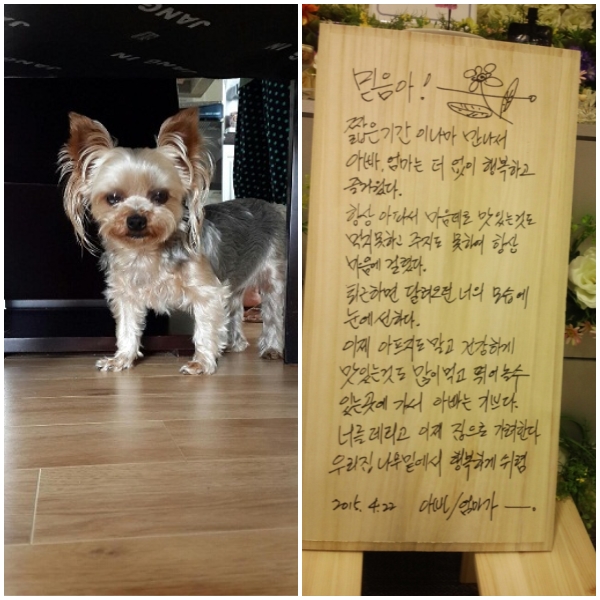 JANG
JANG IN
믿음아!
짧은기간 이나마 만나서
아빠, 엄마는 더 없이 행복하고
즐거웠다.
항상 아파서 마음데로 맛있는것도
먹지못하고 주지도 못하여 항상
마음에 걸렸다.
퇴근하면 달려오던 너의 모습에
눈에 선하다.
이제 아프지도 말고 건강하게
맛있는것도 많이먹고 뛰어놀수
있는곳에 가서 아빠는 기쁘다.
너를 데리고 이제 집으로 가려한다
우리집 나무밑에서 행복하게 쉬렴
2015. 4.22 아빠/엄마가 ㅡ.